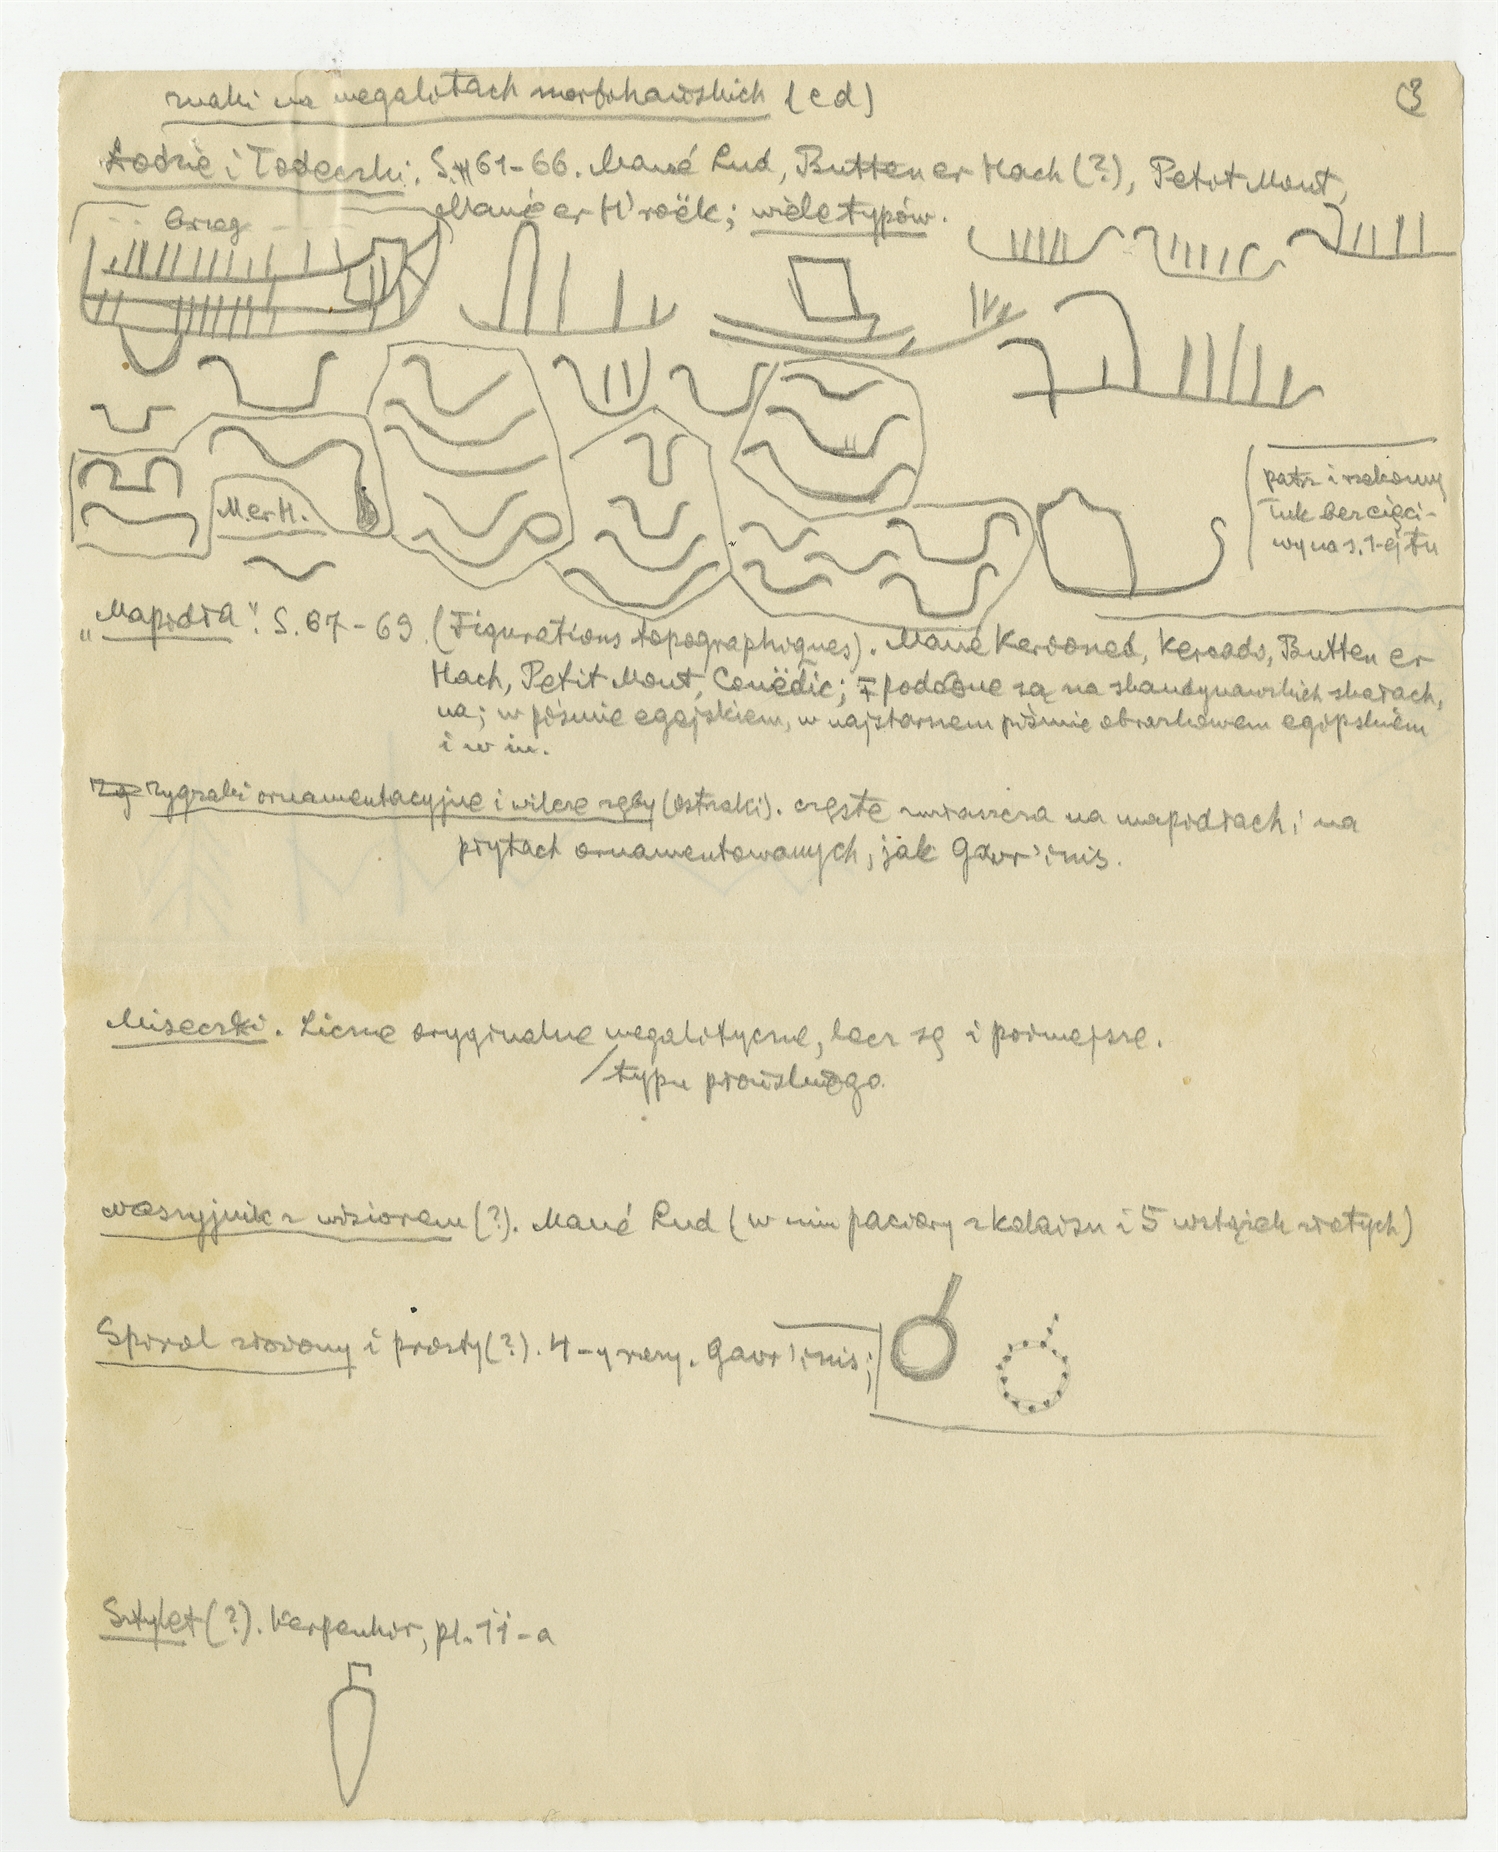 znaki na megalitach morbihańskich (cd)
3
Łodzie i łódeczki: S. 61–66. Mané Lud, Butten er Hach (?), Petit Mont,
Mané er H'roëk; wiele typów.
brzeg
M. er H.
patrz i rzekomy
łuk bez cięci-
wy na s. 1-ej tu
„Mapidła": S. 67–69. (Figurations topographiques). Mané Kerioned, Kercado, Butten er
Hach, Petit Mont, Couëdic; podobne są na skandynawskich skałach,
na; w piśmie egejskiem, w najstarszem piśmie obrazkowem egipskiem
i w in.
Zygzaki ornamentacyjne i wilcze zęby (ostrzaki). częste zwłaszcza na mapidłach i na
płytach ornamentowanych, jak Gavr'inis.
Miseczki. Liczne oryginalne megalityczne, lecz są i późniejsze.
/typu
Naszyjnik z wisiorem (?). Mané Lud (w nim paciory z kalaisu i 5 wstążek złotych)
Spiral złożony i prosty (?). 4-y razy. Gavr'inis;
Sztylet (?). Kerpenhir, pl. 11-a